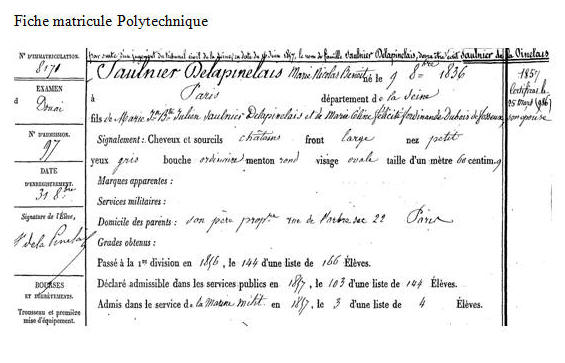 Fiche matricule Polytechnique
N° D'IMMATRICULATION.
8171
EXAMEN
d Douai
N° D'ADMISSION.
97
DATE
D'ENREGISTREMENT.
31 8bre
Signature de l'Élève,
S. de la Pinelais
BOURSES
ET DÉGRÈVEMENTS.
Trousseau et première
mise d'équipement.
par suite d'un jugement du tribunal civil de la Seine en date du 1867, le nom de famille Saulnier Delapinelais, devra être écrit Saulnier de la Pinelais
Saulnier Delapinelais Marie Nicolas Benoît né le 9 8bre 1836
à Paris département de la Seine
fils de Marie Julien Saulnier Delapinelais et de Marie Céline Félicité Ferdinande Dubois de
Signalement : Cheveux et sourcils châtains front large nez petit
yeux gris bouche ordinaire menton rond visage ovale taille d'un mètre 60 centim.
Marques apparentes :
Services militaires :
Domicile des parents : son père propre rue de 22 Paris
Grades obtenus :
Passé à la 1re division en 1856, le 144 d'une liste de 166 Élèves.
Déclaré admissible dans les services publics en 1857, le 103 d'une liste de 144 Élèves.
Admis dans le service de la Marine milit. en 1857, le 3 d'une liste de 4 Élèves.
1857
Certificat le
25 Mars